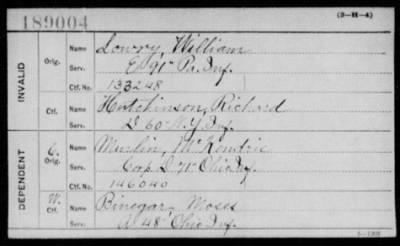 189004
(3—H—4)
INVALID
Orig.
Name Lowry, William
Serv. E 91" Pa. Inf.
Ctf. No. 133248
Ctf.
Name Hutchinson, Richard
Serv. D 60" N.Y. Inf.
DEPENDENT
C. Orig.
Name Murlin, McKendric
Serv. Corp. D 71" Ohio Inf.
Ctf. No. 146040
W. Ctf.
Name Binegar, Moses
Serv. A 48" Ohio Inf.